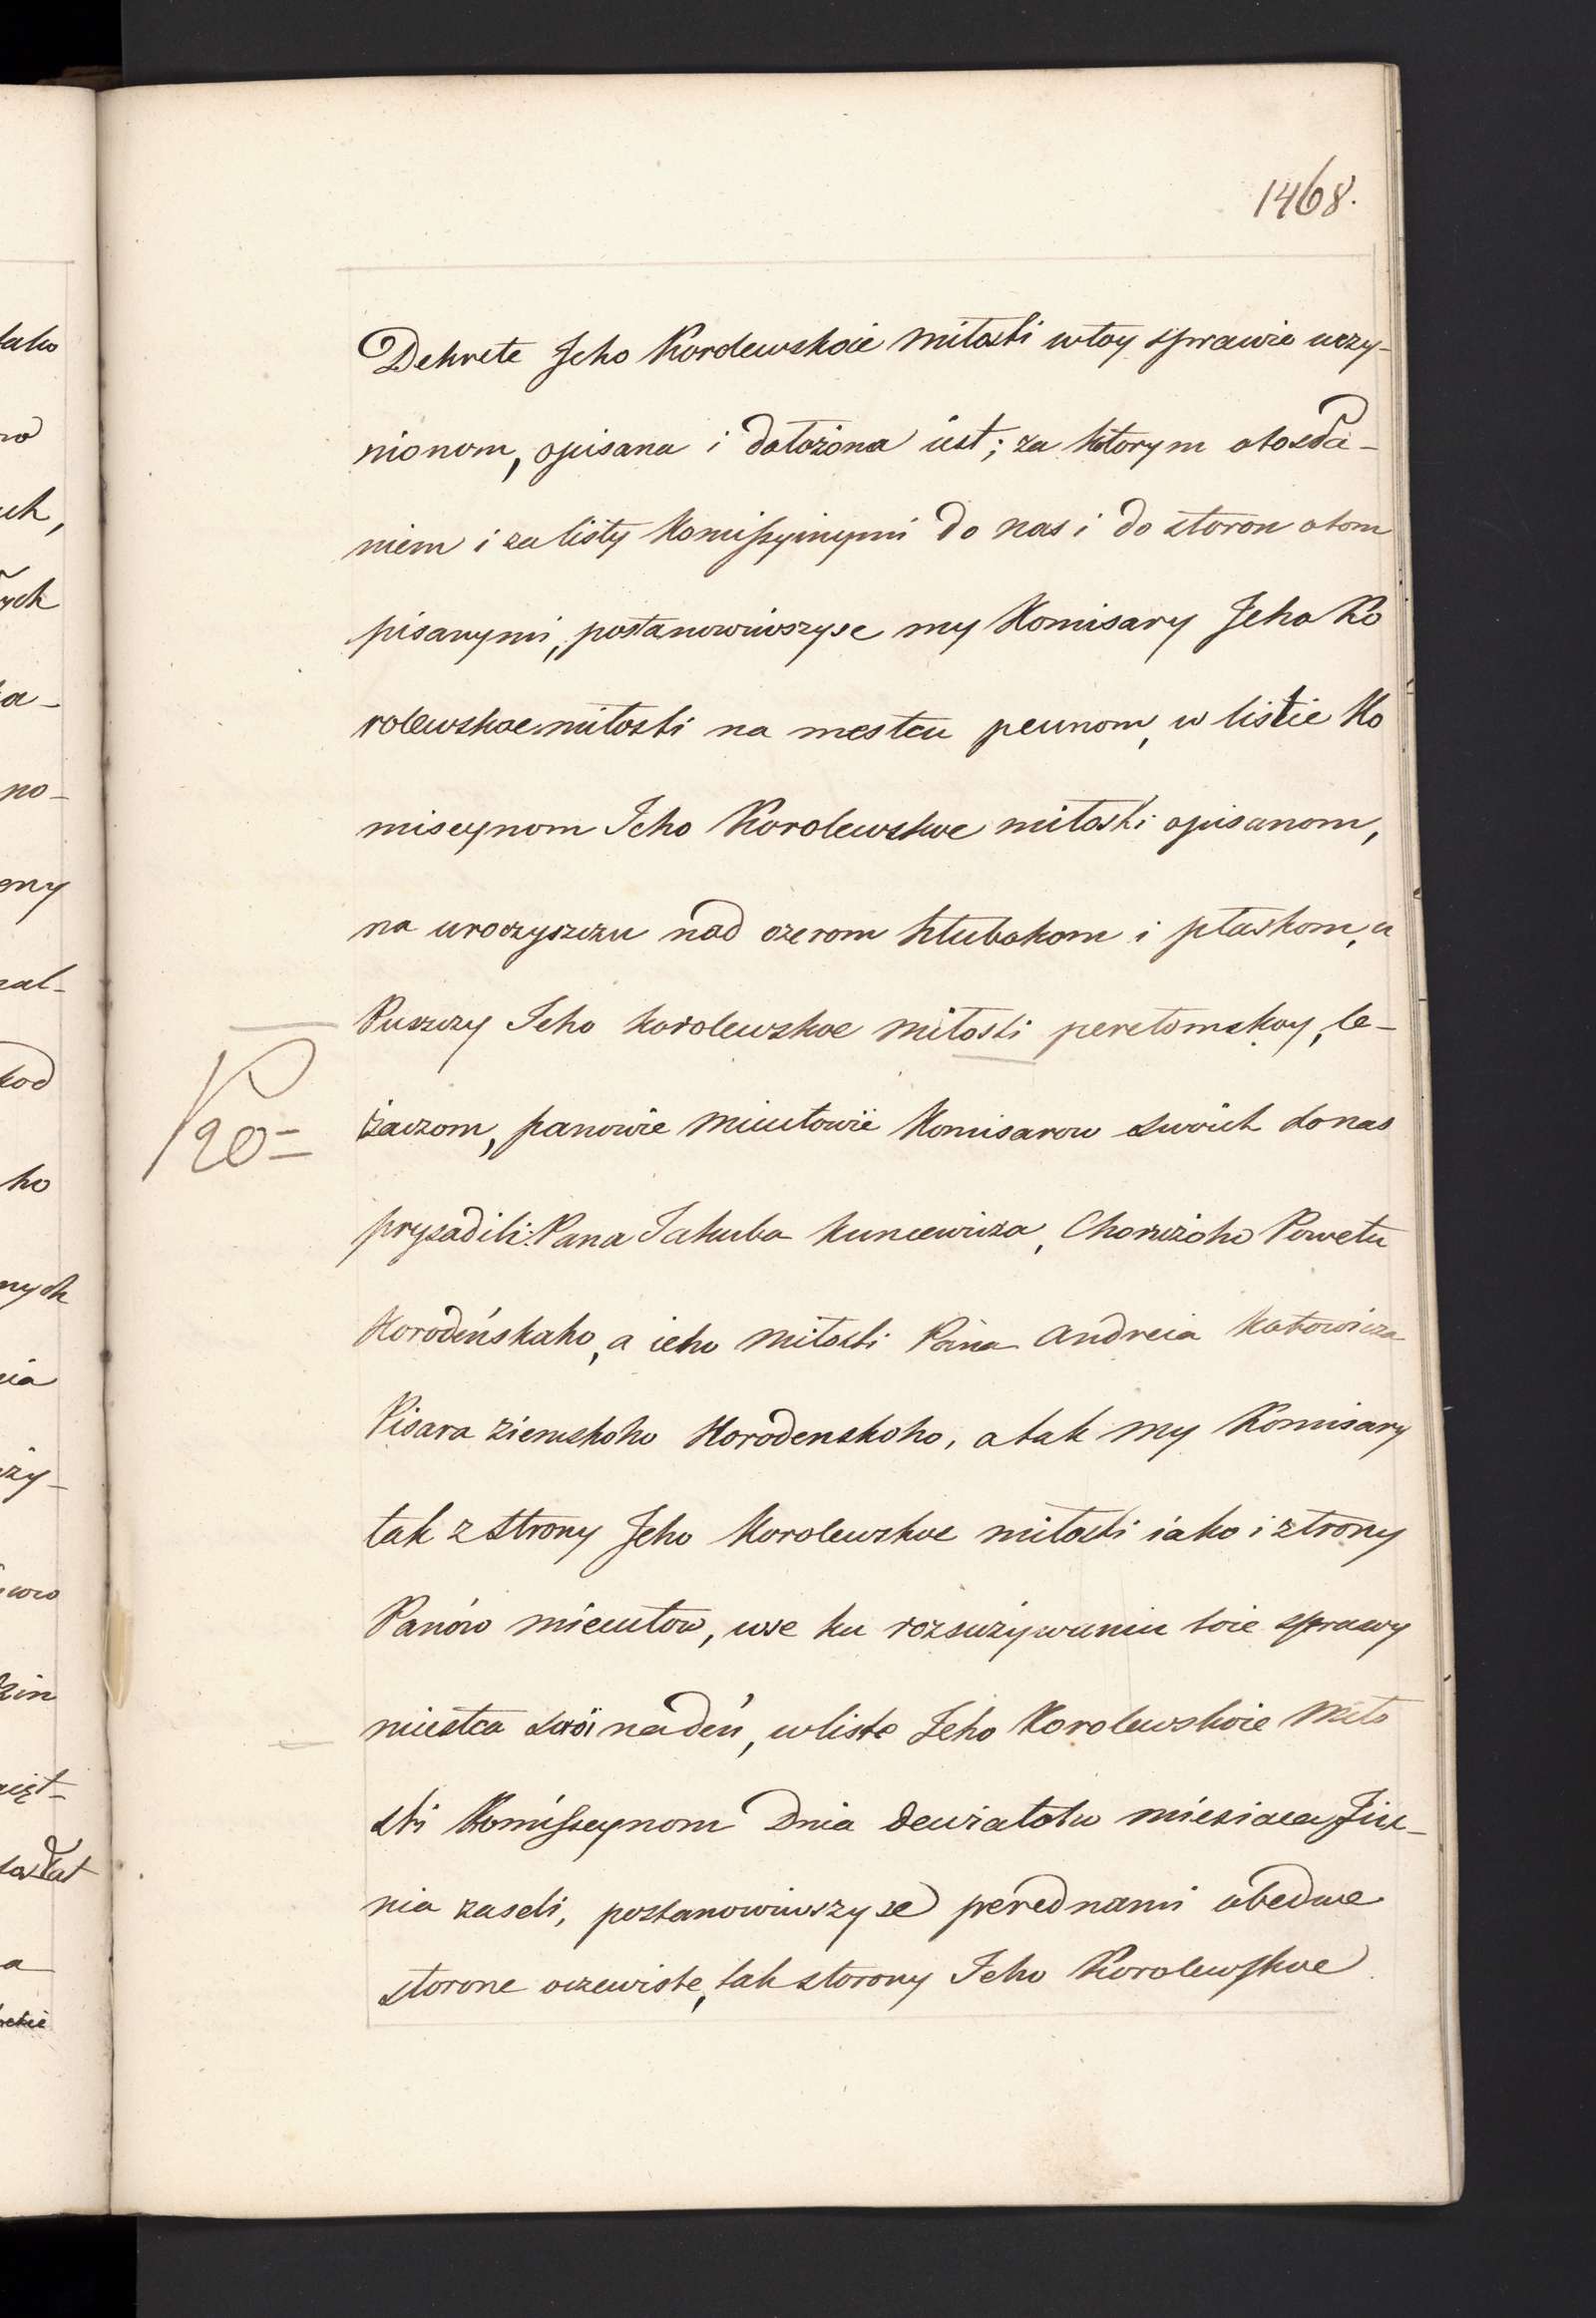 1468.
Dekrete Jeho Korolewskoie miłosti wtoy sprawie uczy-
nionom, opisana i dołożona iest; za kotorym otosła-
niem i za listy Komissyinymi do nas i do storon otom
pisanymi, postanowiwszyse my Komisary Jeho Ko
rolewskoe miłosti na mestcu pewnom, w listie Ko
miseynom Jeho Korolewskoe miłosti opisanom,
na uroczyszczu nad ozerom hłubokom i płaskom, u
Puszczy Jeho korolewskoe miłosti perełomskoy, le-
żaczom, panowie Micutowie Komisarow swoich do nas
prysadili: Pana Jakuba Kuncewicza, Chorużoho Powetu
Horodeńskaho, a ieho miłosti Pana Andreia Kotowicza
Pisara ziemskoho Horodenskoho, a tak my Komisary
tak z strony Jeho Korolewskoe miłosti iako i ztrony
Panów Micutow, wse ku rozsużywaniu toie sprawy
miestca swoi nadeń, w liste Jeho Korolewskoie Miło
sti Komisseynom Dnia dewiatoho miesiaca Jiu-
nia zaseli, postanowiwszy se perednami obedwe
storone oczewiste, tak storony Jeho Korolewskoe
P
20=
ho